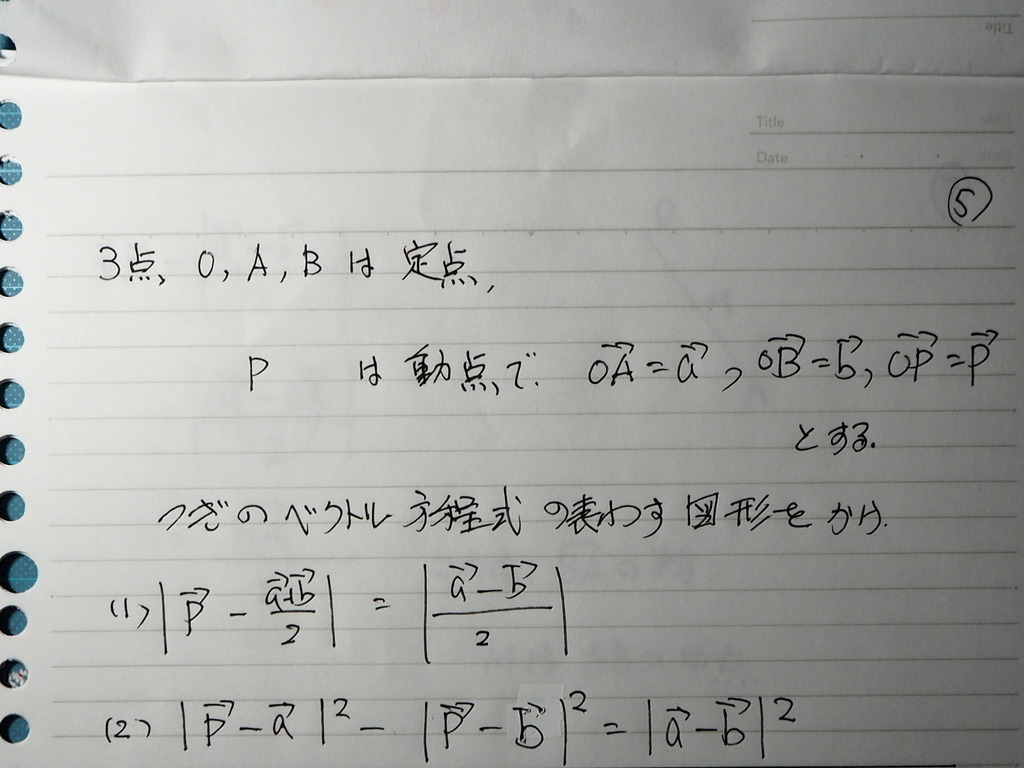 Title
Title
Date
⑤
3点、O, A, B は 定点,
P は 動点で. \overrightarrow{OA}=\vec{a}, \overrightarrow{OB}=\vec{b}, \overrightarrow{OP}=\vec{p}
とする.
つぎのベクトル方程式の表わす図形をかけ.
(1) |\vec{p} - \frac{\vec{a}+\vec{b}}{2}| = |\frac{\vec{a}-\vec{b}}{2}|
(2) |\vec{p}-\vec{a}|^2 - |\vec{p}-\vec{b}|^2 = |\vec{a}-\vec{b}|^2